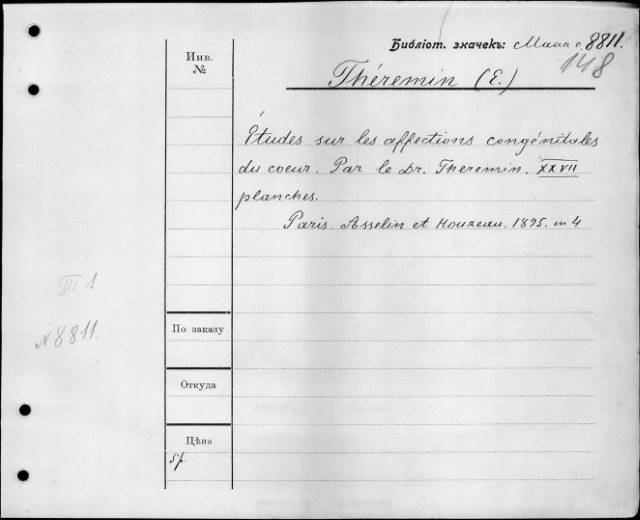 Библіот. значекъ: 8811.
148
Инв.
№
Théremin (E.)
Études sur les affections congénitales
du coeur. Par le Dr. Theremin. XXVII
planches.
Paris. Asselin et Houzeau. 1895. in 4
III 1
N 8811.
По заказу
Откуда
Цѣна